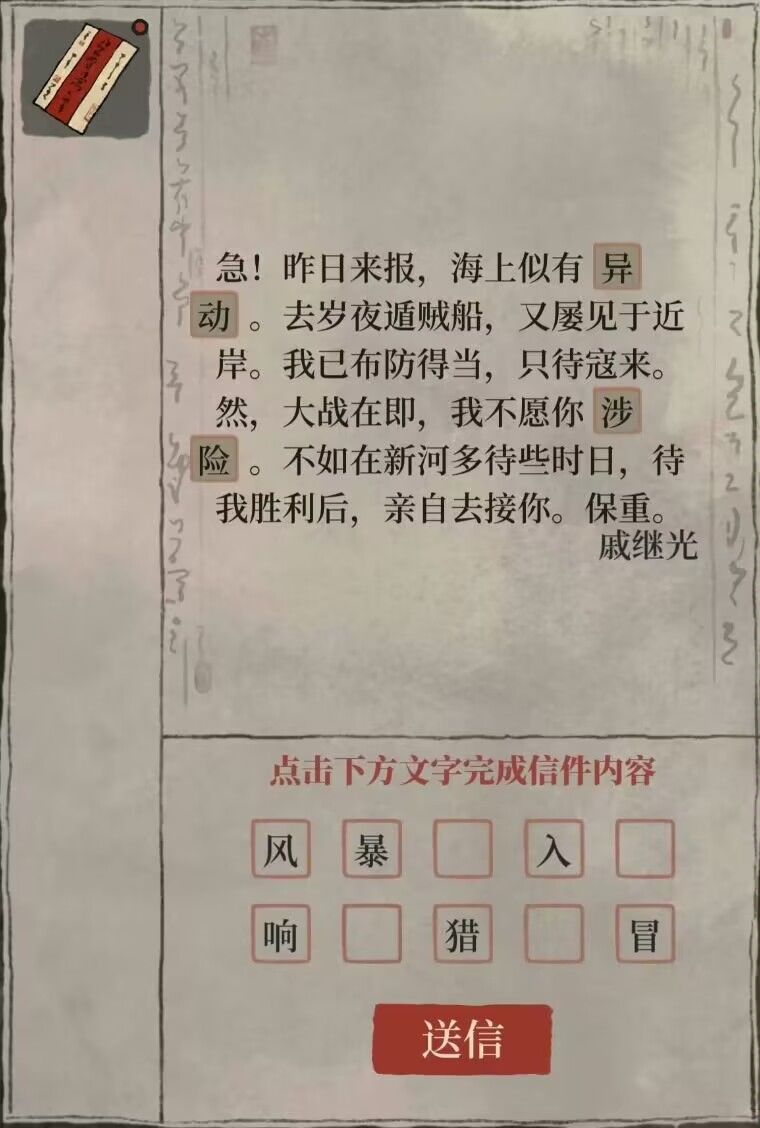 急！昨日来报，海上似有异
动。去岁夜遁贼船，又屡见于近
岸。我已布防得当，只待寇来。
然，大战在即，我不愿你涉
险。不如在新河多待些时日，待
我胜利后，亲自去接你。保重。
戚继光
点击下方文字完成信件内容
风 暴 入
响 猎 冒
送信